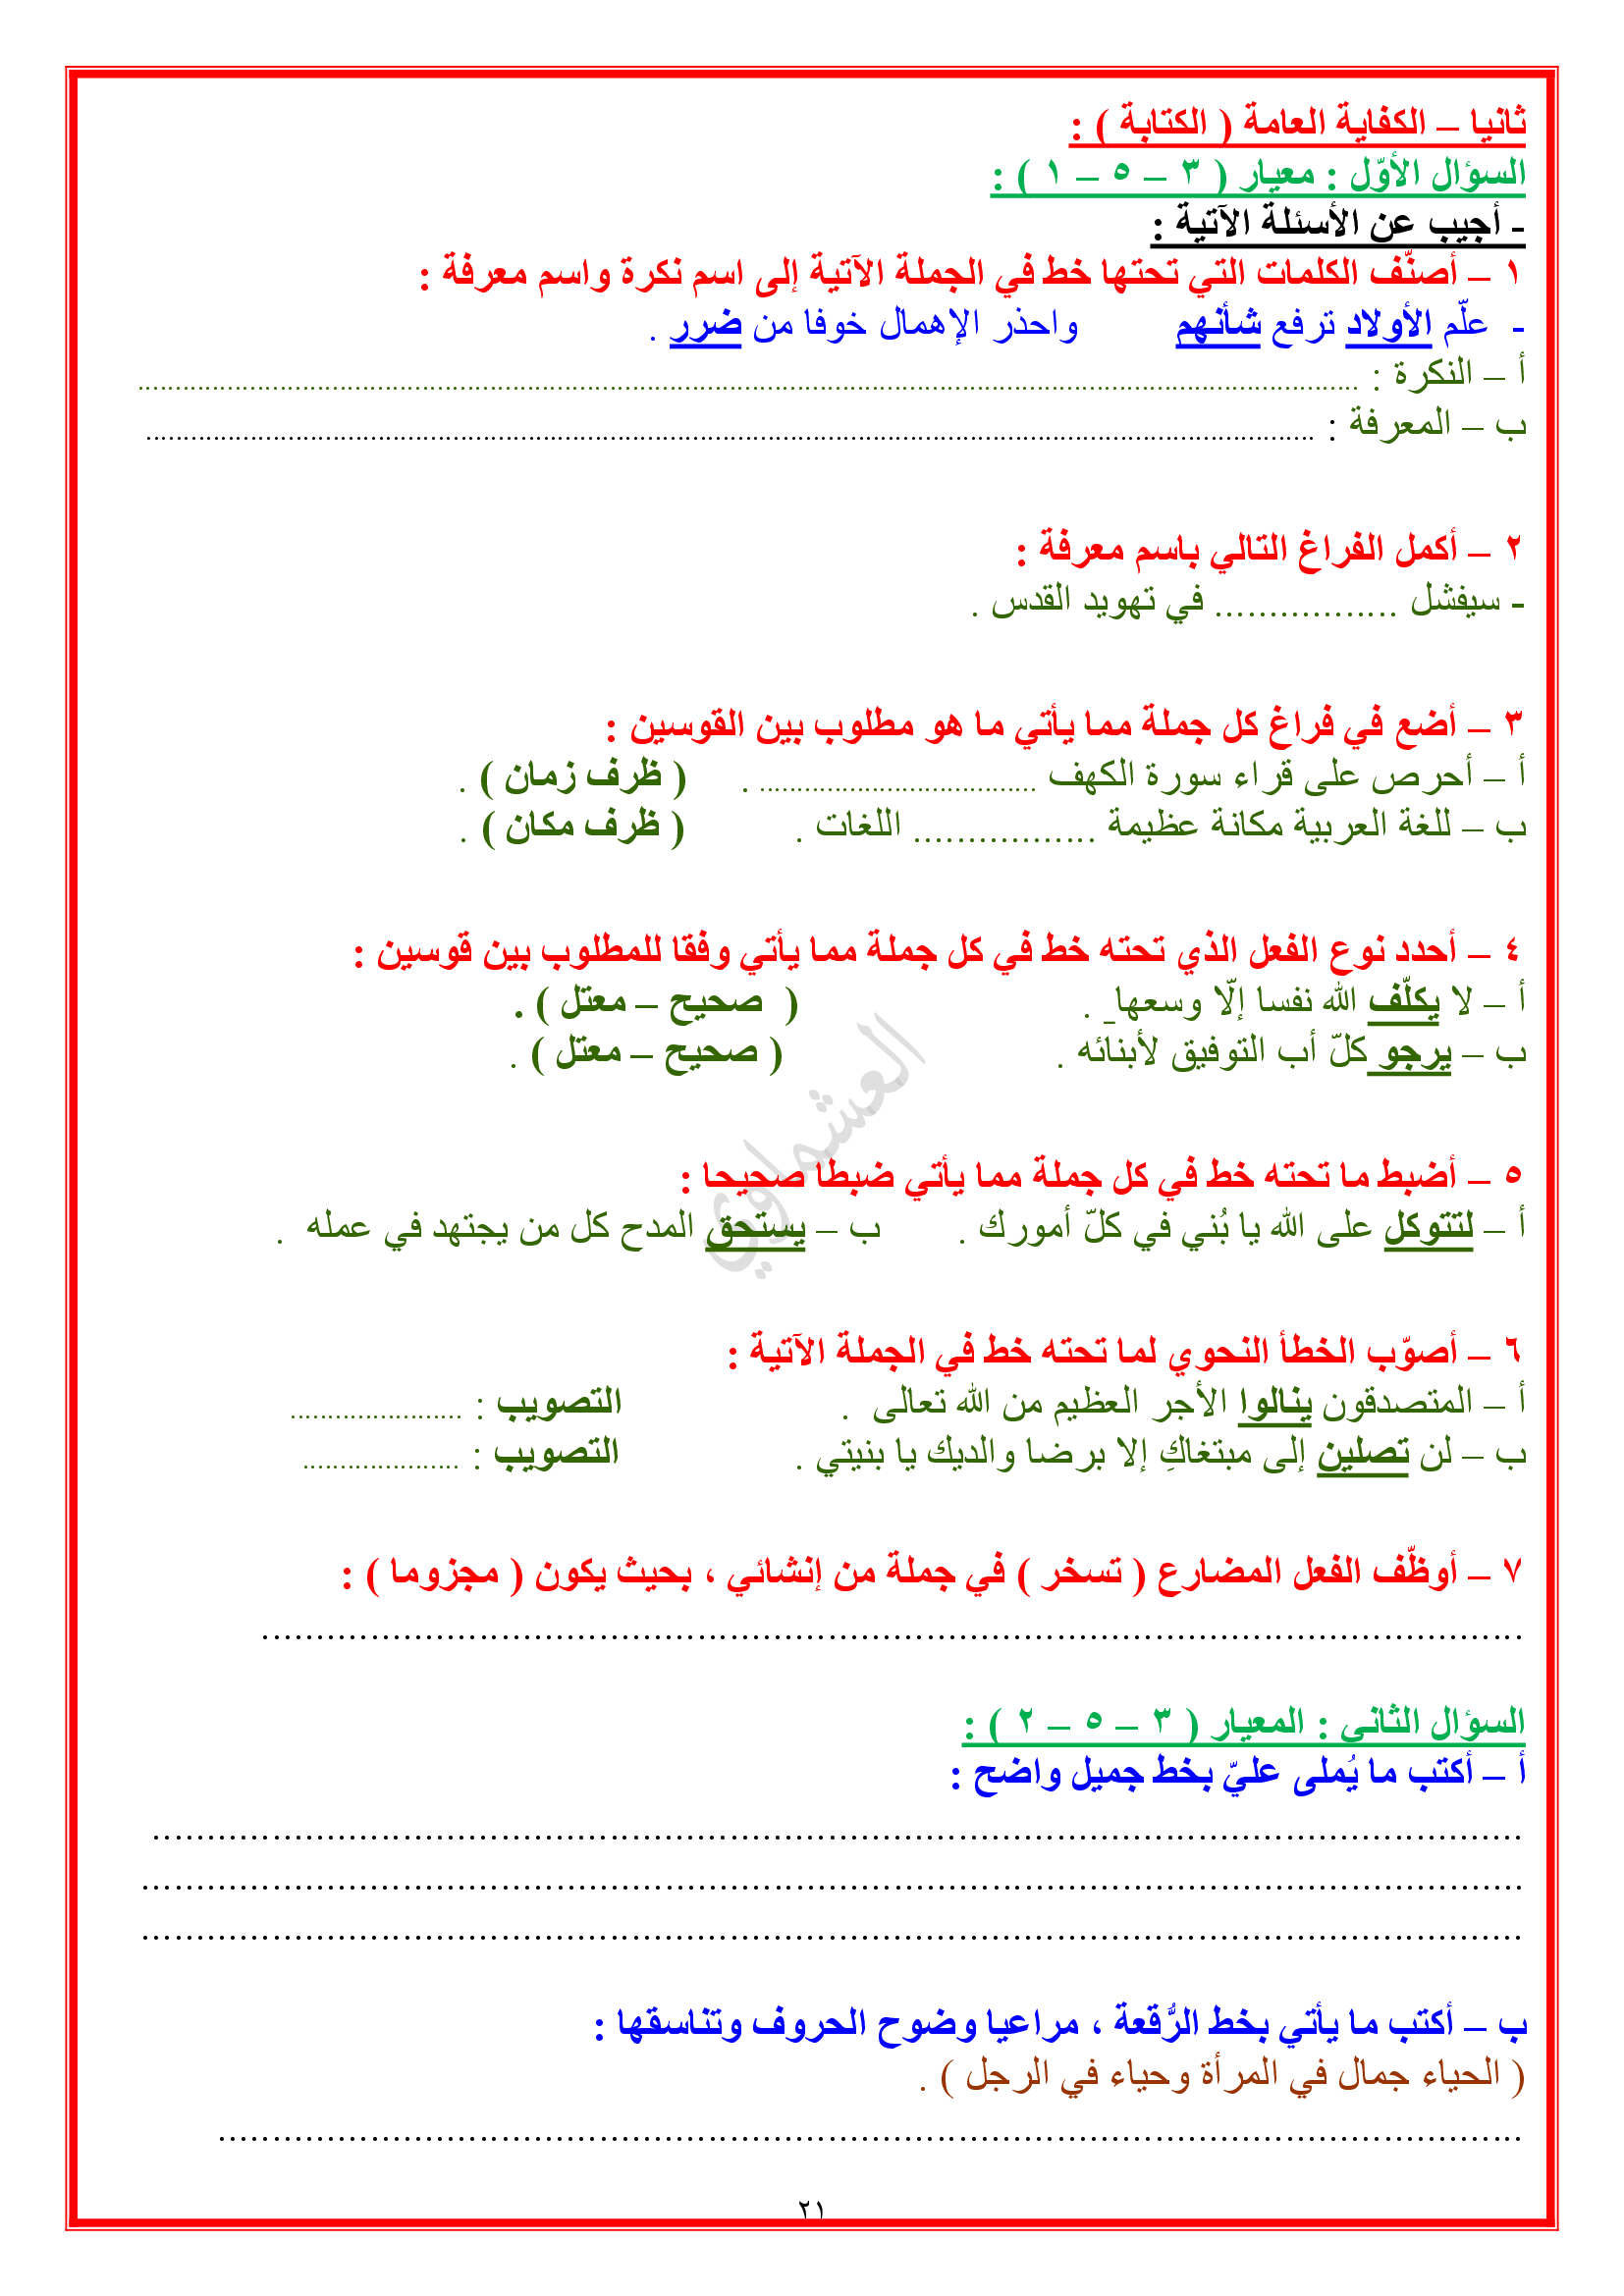 ثانيا – الكفاية العامة ( الكتابة ) :
السؤال الأوّل : معيار ( ٣ – ٥ – ١ ) :
- أجيب عن الأسئلة الآتية :
١ – أصنّف الكلمات التي تحتها خط في الجملة الآتية إلى اسم نكرة واسم معرفة :
- علّم الأولاد ترفع شأنهم واحذر الإهمال خوفا من ضرر .
أ – النكرة : ................................................................
ب – المعرفة : ................................................................
٢ – أكمل الفراغ التالي باسم معرفة :
- سيفشل ................. في تهويد القدس .
٣ – أضع في فراغ كل جملة مما يأتي ما هو مطلوب بين القوسين :
أ – أحرص على قراء سورة الكهف ..................................... . ( ظرف زمان ) .
ب – للغة العربية مكانة عظيمة ................. اللغات . ( ظرف مكان ) .
٤ – أحدد نوع الفعل الذي تحته خط في كل جملة مما يأتي وفقا للمطلوب بين قوسين :
أ – لا يكلّف الله نفسا إلّا وسعها . ( صحيح – معتل ) .
ب – يرجو كلّ أب التوفيق لأبنائه . ( صحيح – معتل ) .
العشماوي
٥ – أضبط ما تحته خط في كل جملة مما يأتي ضبطا صحيحا :
أ – لتتوكل على الله يا بُني في كلّ أمورك . ب – يستحق المدح كل من يجتهد في عمله .
٦ – أصوّب الخطأ النحوي لما تحته خط في الجملة الآتية :
أ – المتصدقون ينالوا الأجر العظيم من الله تعالى . التصويب : .......................
ب – لن تصلين إلى مبتغاكِ إلا برضا والديك يا بنيتي . التصويب : .....................
٧ – أوظّف الفعل المضارع ( تسخر ) في جملة من إنشائي ، بحيث يكون ( مجزوما ) :
................................................................
السؤال الثاني : المعيار ( ٣ – ٥ – ٢ ) :
أ – أكتب ما يُملى عليّ بخط جميل واضح :
................................................................
................................................................
................................................................
ب – أكتب ما يأتي بخط الرُّقعة ، مراعيا وضوح الحروف وتناسقها :
( الحياء جمال في المرأة وحياء في الرجل ) .
................................................................
٢١